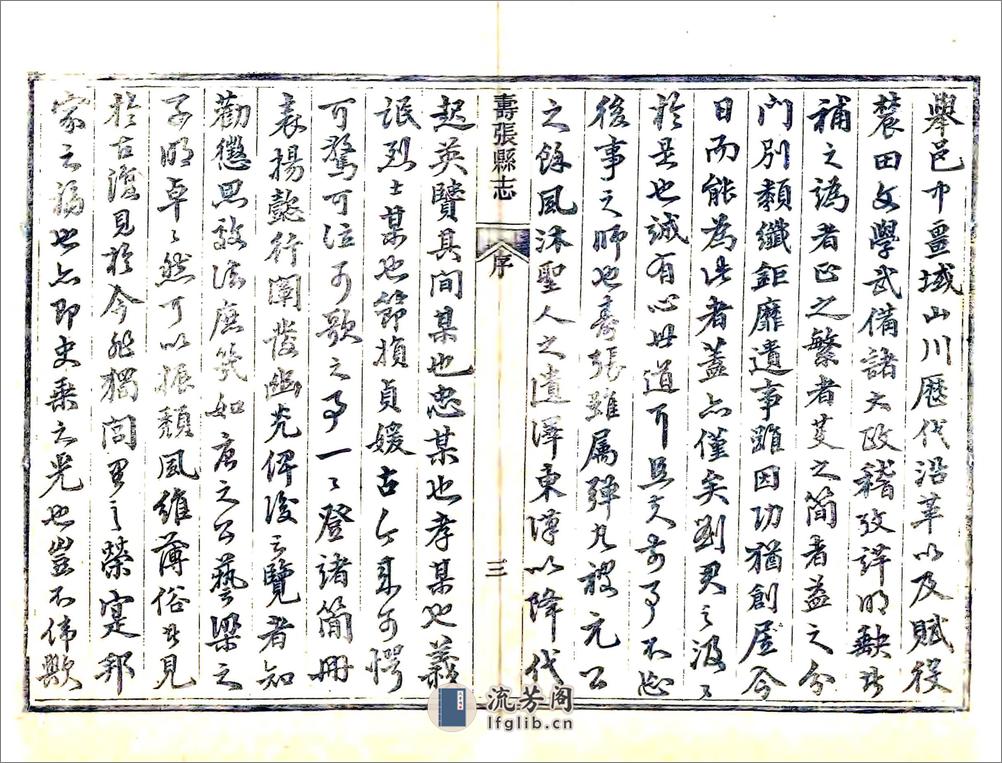 舉邑中畺域山川歷代沿革以及賦役
農田文學武備諸大政稽攷詳明缺者
補之譌者正之繁者芟之簡者益之分
門別類纖鉅靡遺事雖因功猶創居今
日而能為此者蓋亦僅矣劉君之汲〻
於是也誠有心世道耶且夫前事不忘
後事之師也壽張雖属彈丸被元公
之餘風沐聖人之遺澤東漢以降代
壽張縣志
序
三
起英賢其間某也忠某也孝某也義
氓烈士某也節楨貞媛古今來可愕
可驚可泣可歌之事一〻登諸簡冊
表揚懿行闡發幽光俾後之覽者知
勸懲思敬法庶幾如唐之公藝梁之
子明卓〻然可以振頹風維薄俗者見
於古復見於今非獨閭里之榮寔邦
家之福也亦即史乘之光也豈不偉歟
流芳阁
lfglib.cn